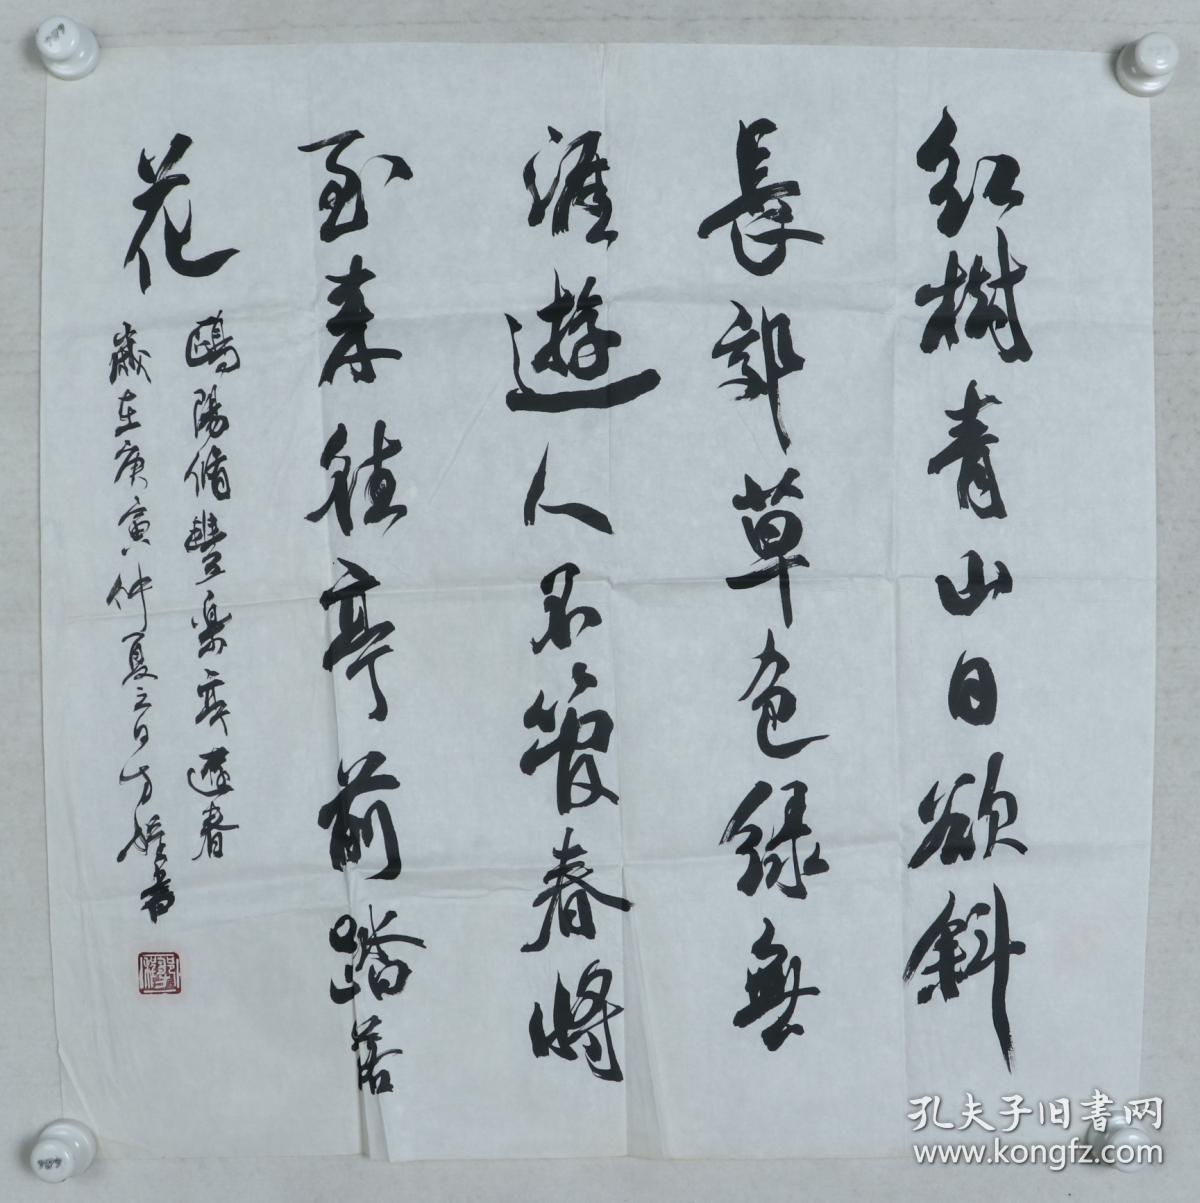 红樹青山日欲斜
長郊草色绿無
涯遊人不管春將
至来往亭前踏落
花
鷗陽脩豐樂亭遊春
歲在庚寅仲夏之日方
書
孔夫子旧書网
www.kongfz.com